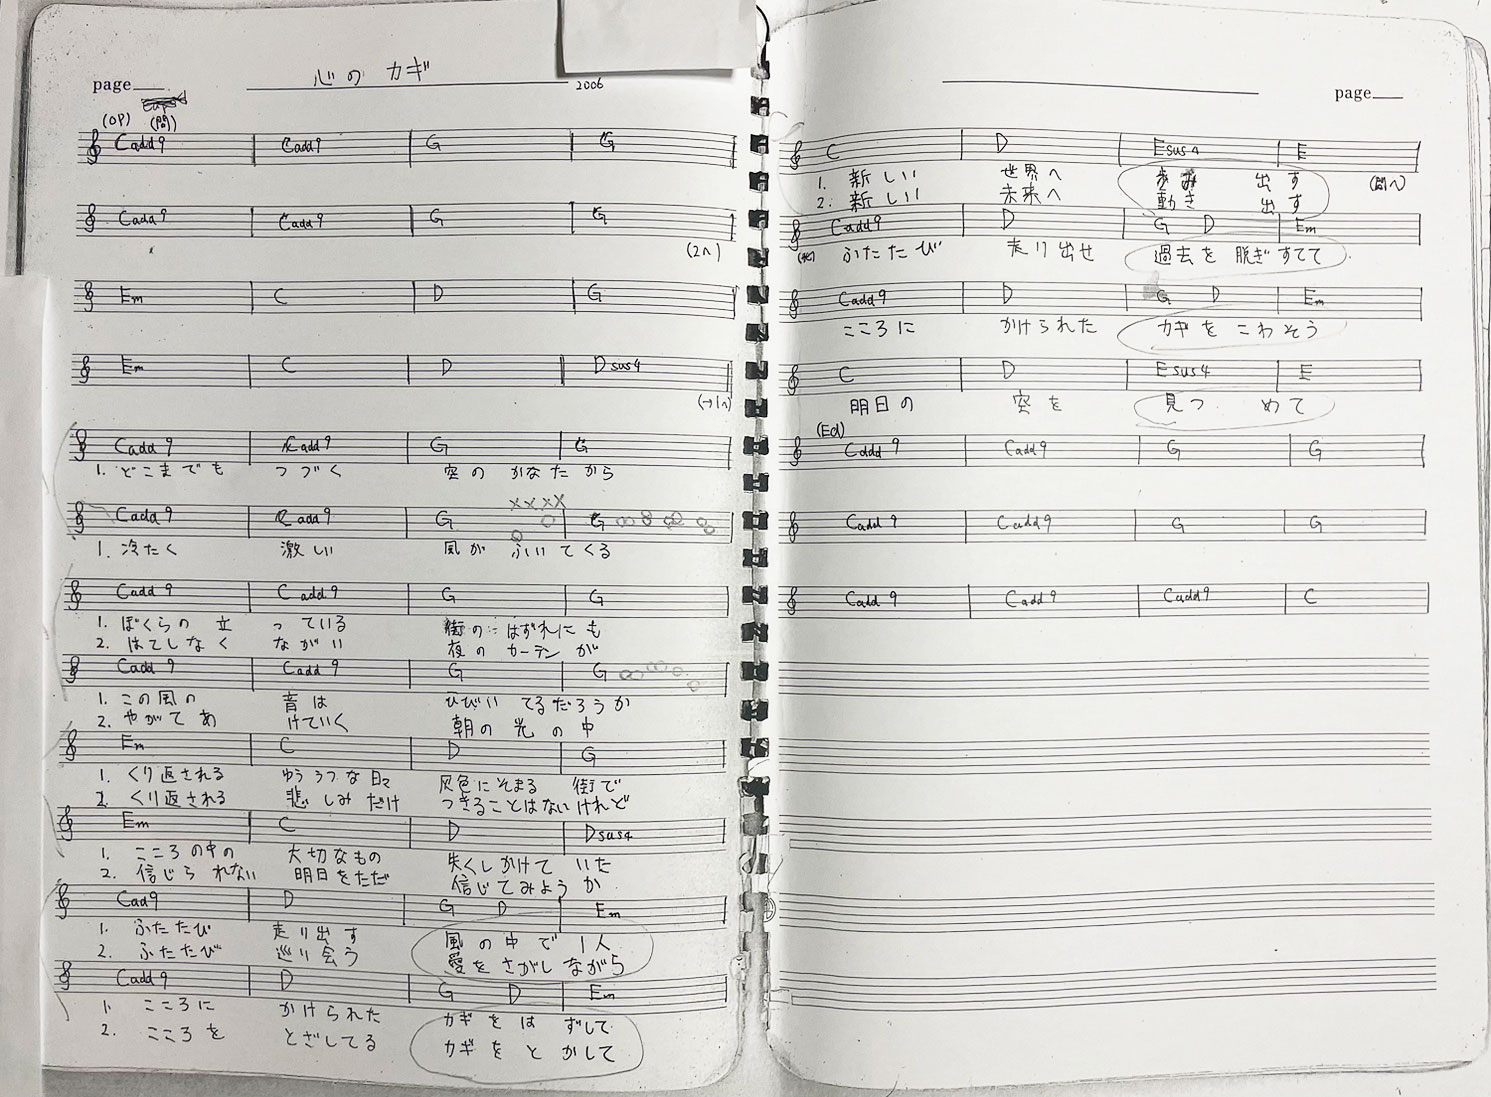 心の カギ
page 2006
(OP) (間)
Cadd9 Cadd9 G G
Cadd9 Cadd9 G G
(2へ)
Em C D G
Em C D Dsus4
(→1へ)
Cadd9 Cadd9 G G
1. どこまでも つづく 空の かなたから
Cadd9 Cadd9 G G
1. 冷たく 激しい 風が ふいてくる
Cadd9 Cadd9 G G
1. ぼくらの 立 っている 街の はずれにも
2. はてしなく ながい 夜の カーテンが
Cadd9 Cadd9 G G
1. この風の 音は ひびい てるだろうか
2. やがてあ けていく 朝の 光の中
Em C D G
1. くり返される ゆううつな日々 灰色にそまる 街で
2. くり返される 悲しみだけ つきることはないけれど
Em C D Dsus4
1. こころの中の 大切なもの 失くしかけて いた
2. 信じられない 明日をただ 信じてみよう か
Cad9 D G D Em
1. ふたたび 走り出す 風の中で 1人
2. ふたたび 巡り会う 愛をさがしながら
Cadd9 D G D Em
1. こころに かけられた カギをは ずして
2. こころを とざしてる カギをと かして
page
C D Esus4 E
1. 新しい 世界へ 歩み 出す (間へ)
2. 新しい 未来へ 動き 出す
Cadd9 D G D Em
ふたたび 走り出せ 過去を 脱ぎすてて
Cadd9 D G D Em
こころに かけられた カギを こわそう
C D Esus4 E
明日の 空を 見つ めて
(Ed)
Cddd9 Cadd9 G G
Cadd9 Cadd9 G G
Cadd9 Cadd9 Cadd9 C